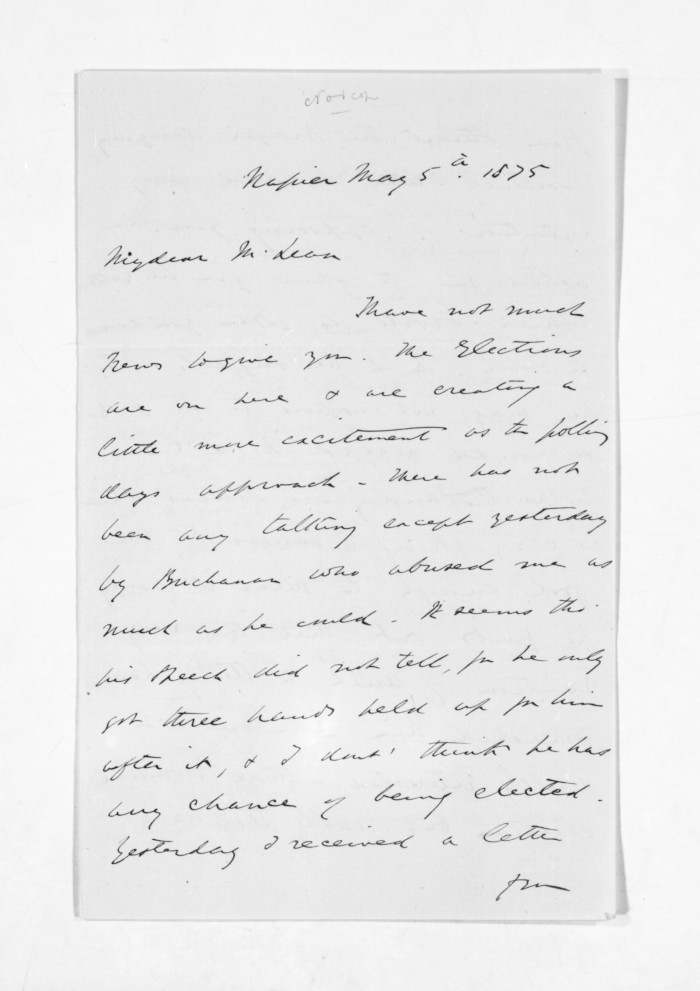 Napier May 5th. 1875
My dear McLean
I have not much
News to give you. The Elections
are on here & are creating a
little more excitement as the polling
days approach - There has not
been any talking except yesterday
by Buchanan who abused me as
much as he could. It seems tho'
his Speech did not tell, for he only
got three hands held up for him
after it, & I dont' think he has
any chance of being elected.
Yesterday I received a letter
from